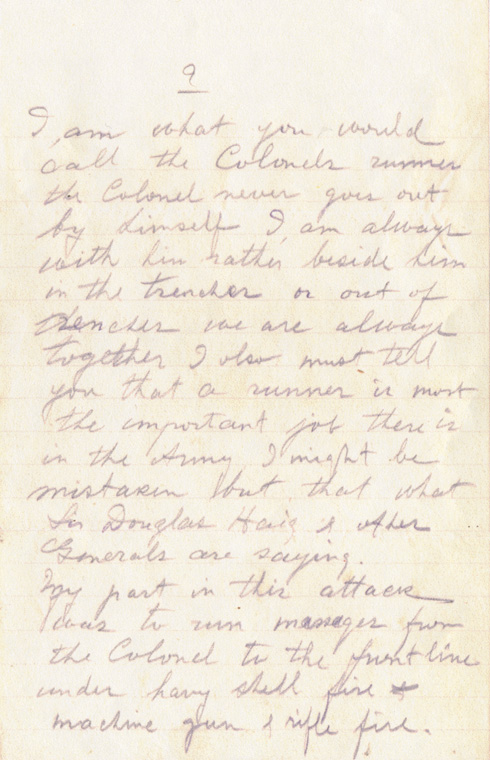 9
I, am what you would
call the Colonels runner
the Colonel never goes out
by himself I, am always
with him rather beside him
in the trenches or out of
trenches we are always
together I also must tell
you that a runner is most
the important job there is
in the Army I might be
mistaken but that what
Sir Douglas Haig & other
Generals are saying.
My part in this attack
was to run messages from
the Colonel to the front line
under havy shell fire &
machine gun & rifle fire.